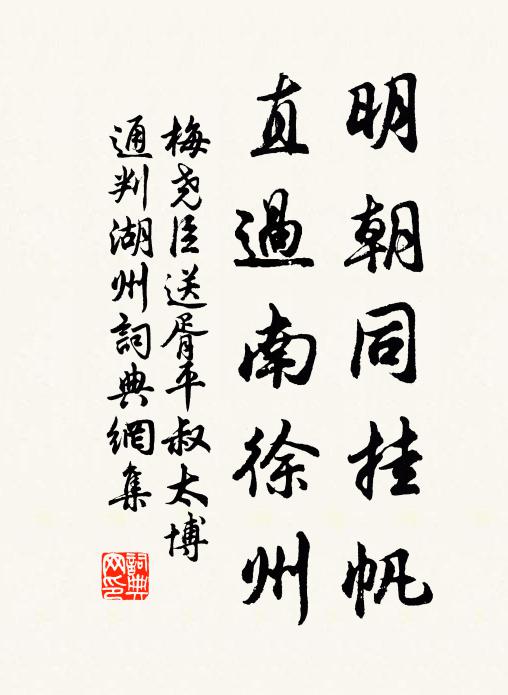 明朝同挂帆
直過南徐州
梅尧臣送胥平叔太博
通判湖州詞典網集
詞典
网印